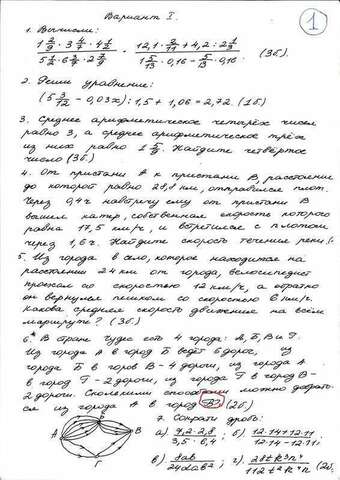 Вариант I.
1
1. Вычисли:
1 2/9 · 3 4/7 · 4 1/2
12,1 · 2/11 + 4,2 : 2 1/3
(3б.)
1 5/13 · 0,16 - 5/13 · 0,16
2. Реши уравнение:
(5 3/12 - 0,03x) : 1,5 + 1,06 = 2,72. (1б)
3. Среднее арифметическое четырёх чисел
равно 3, а среднее арифметическое трёх
из них равно 1 Найдите четвёртое
число (3б.)
4. От пристани А к пристани В, расстояние
до которой равно 28,8 км, отправился плот.
Через 0,4 ч навстречу ему от пристани В
вышел катер, собственная скорость которого
равна 17,5 км/ч, и встретился с плотом
через 1,6 ч. Найдите скорость течения реки.
5. Из города в село, которое находится на
расстоянии 24 км от города, велосипедист
проехал со скоростью 12 км/ч, а обратно
он вернулся пешком со скоростью 6 км/ч.
Какова средняя скорость движения на всём
маршруте? (3б.)
6.* В стране Чудес есть 4 города: А, Б, В и Г.
Из города А в город Б ведёт 6 дорог, из
города Б в город В - 4 дороги, из города А
в город Г - 2 дороги, из города Г в город В -
2 дороги. Сколькими способами можно добрать-
ся из города А в город В? (2б.)
Б
А
В
Г
7. Сократи дробь:
а) 4,2·2,8 / 3,5·6,4; б) 12·14+12·11 / 12·14-12·11;
в) 8ab / 24dab²; г) (2б.)